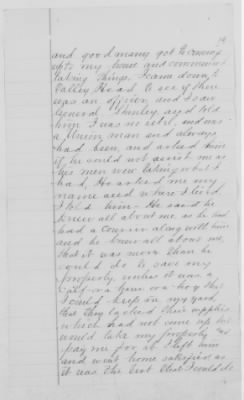 and good many got to coming
up to my house and commenced
taking things, I came down to
Valley Head to see if there
was an officer, and I saw
General Stanley, and told
him I was no rebel, and was
a Union man and always
had been, and asked him
if he could not assist me as
his men were taking what I
had, He asked me my
name and where I lived.
I told him - He said he
knew all about me, as he and
had a Courier along with him
and he knew all about me,
that it was more than he
could do to save my
property, unless it was a
Calf or a horse or a hog that
I could keep in my yard,
that they lacked their supplies
which had not come up, he
would take my property and
pay me for it, I left him
and went home satisfied as
it was the best that I could do